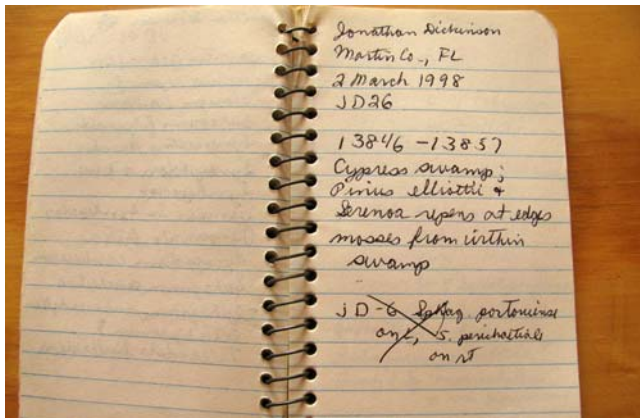 Jonathan Dickinson
Martin Co., FL
2 March 1998
JD26
13846-13857
Cypress swamp;
Pinus elliottii &
Serenoa repens at edges
mosses from within
swamp
JD-6 Sphag. portoricense
on L, S. perichaetiale
on rt